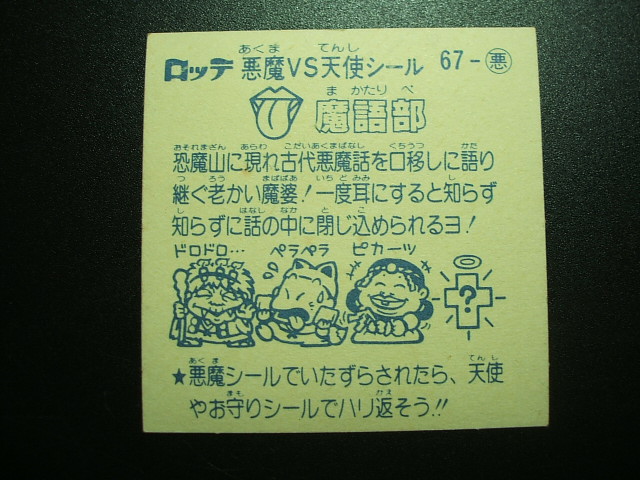 ロッテ 悪魔VS天使シール 67-悪
あくま てんし
魔語部
ま かたり べ
恐魔山に現れ古代悪魔話を口移しに語り
おそれまざん あらわ こだいあくまばなし くちうつ かた
継ぐ老かい魔婆!一度耳にすると知らず
つ ろう まばばあ いちど みみ し
知らずに話の中に閉じ込められるヨ!
し はなし なか と こ
ドロドロ… ペラペラ ピカーッ
?
★悪魔シールでいたずらされたら、天使
あくま てんし
やお守りシールでハリ返そう!!
まも かえ